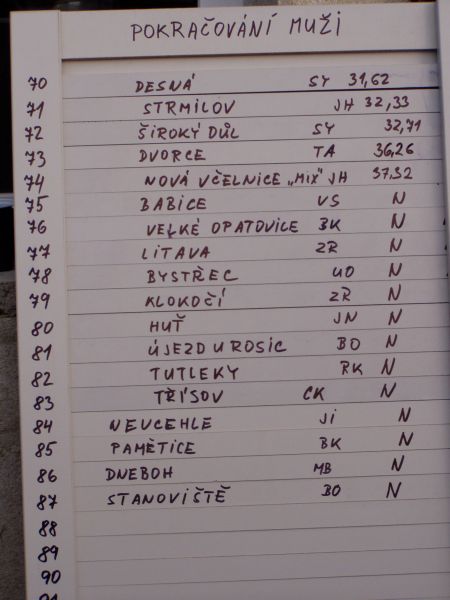 POKRAČOVÁNÍ MUŽI
70 DESNÁ SY 31,62
71 STRMILOV JH 32,33
72 ŠIROKÝ DŮL SY 32,71
73 DVORCE TA 36,26
74 NOVÁ VČELNICE „MIX" JH 37,32
75 BABICE VS N
76 VELKÉ OPATOVICE BK N
77 LITAVA ZR N
78 BYSTŘEC UO N
79 KLOKOČÍ ZŘ N
80 HUŤ JN N
81 ÚJEZD U ROSIC BO N
82 TUTLEKY RK N
83 TŘÍSOV CK N
84 NEVCEHLE JI N
85 PAMĚTICE BK N
86 DNEBOH MB N
87 STANOVIŠTĚ BO N
88
89
90